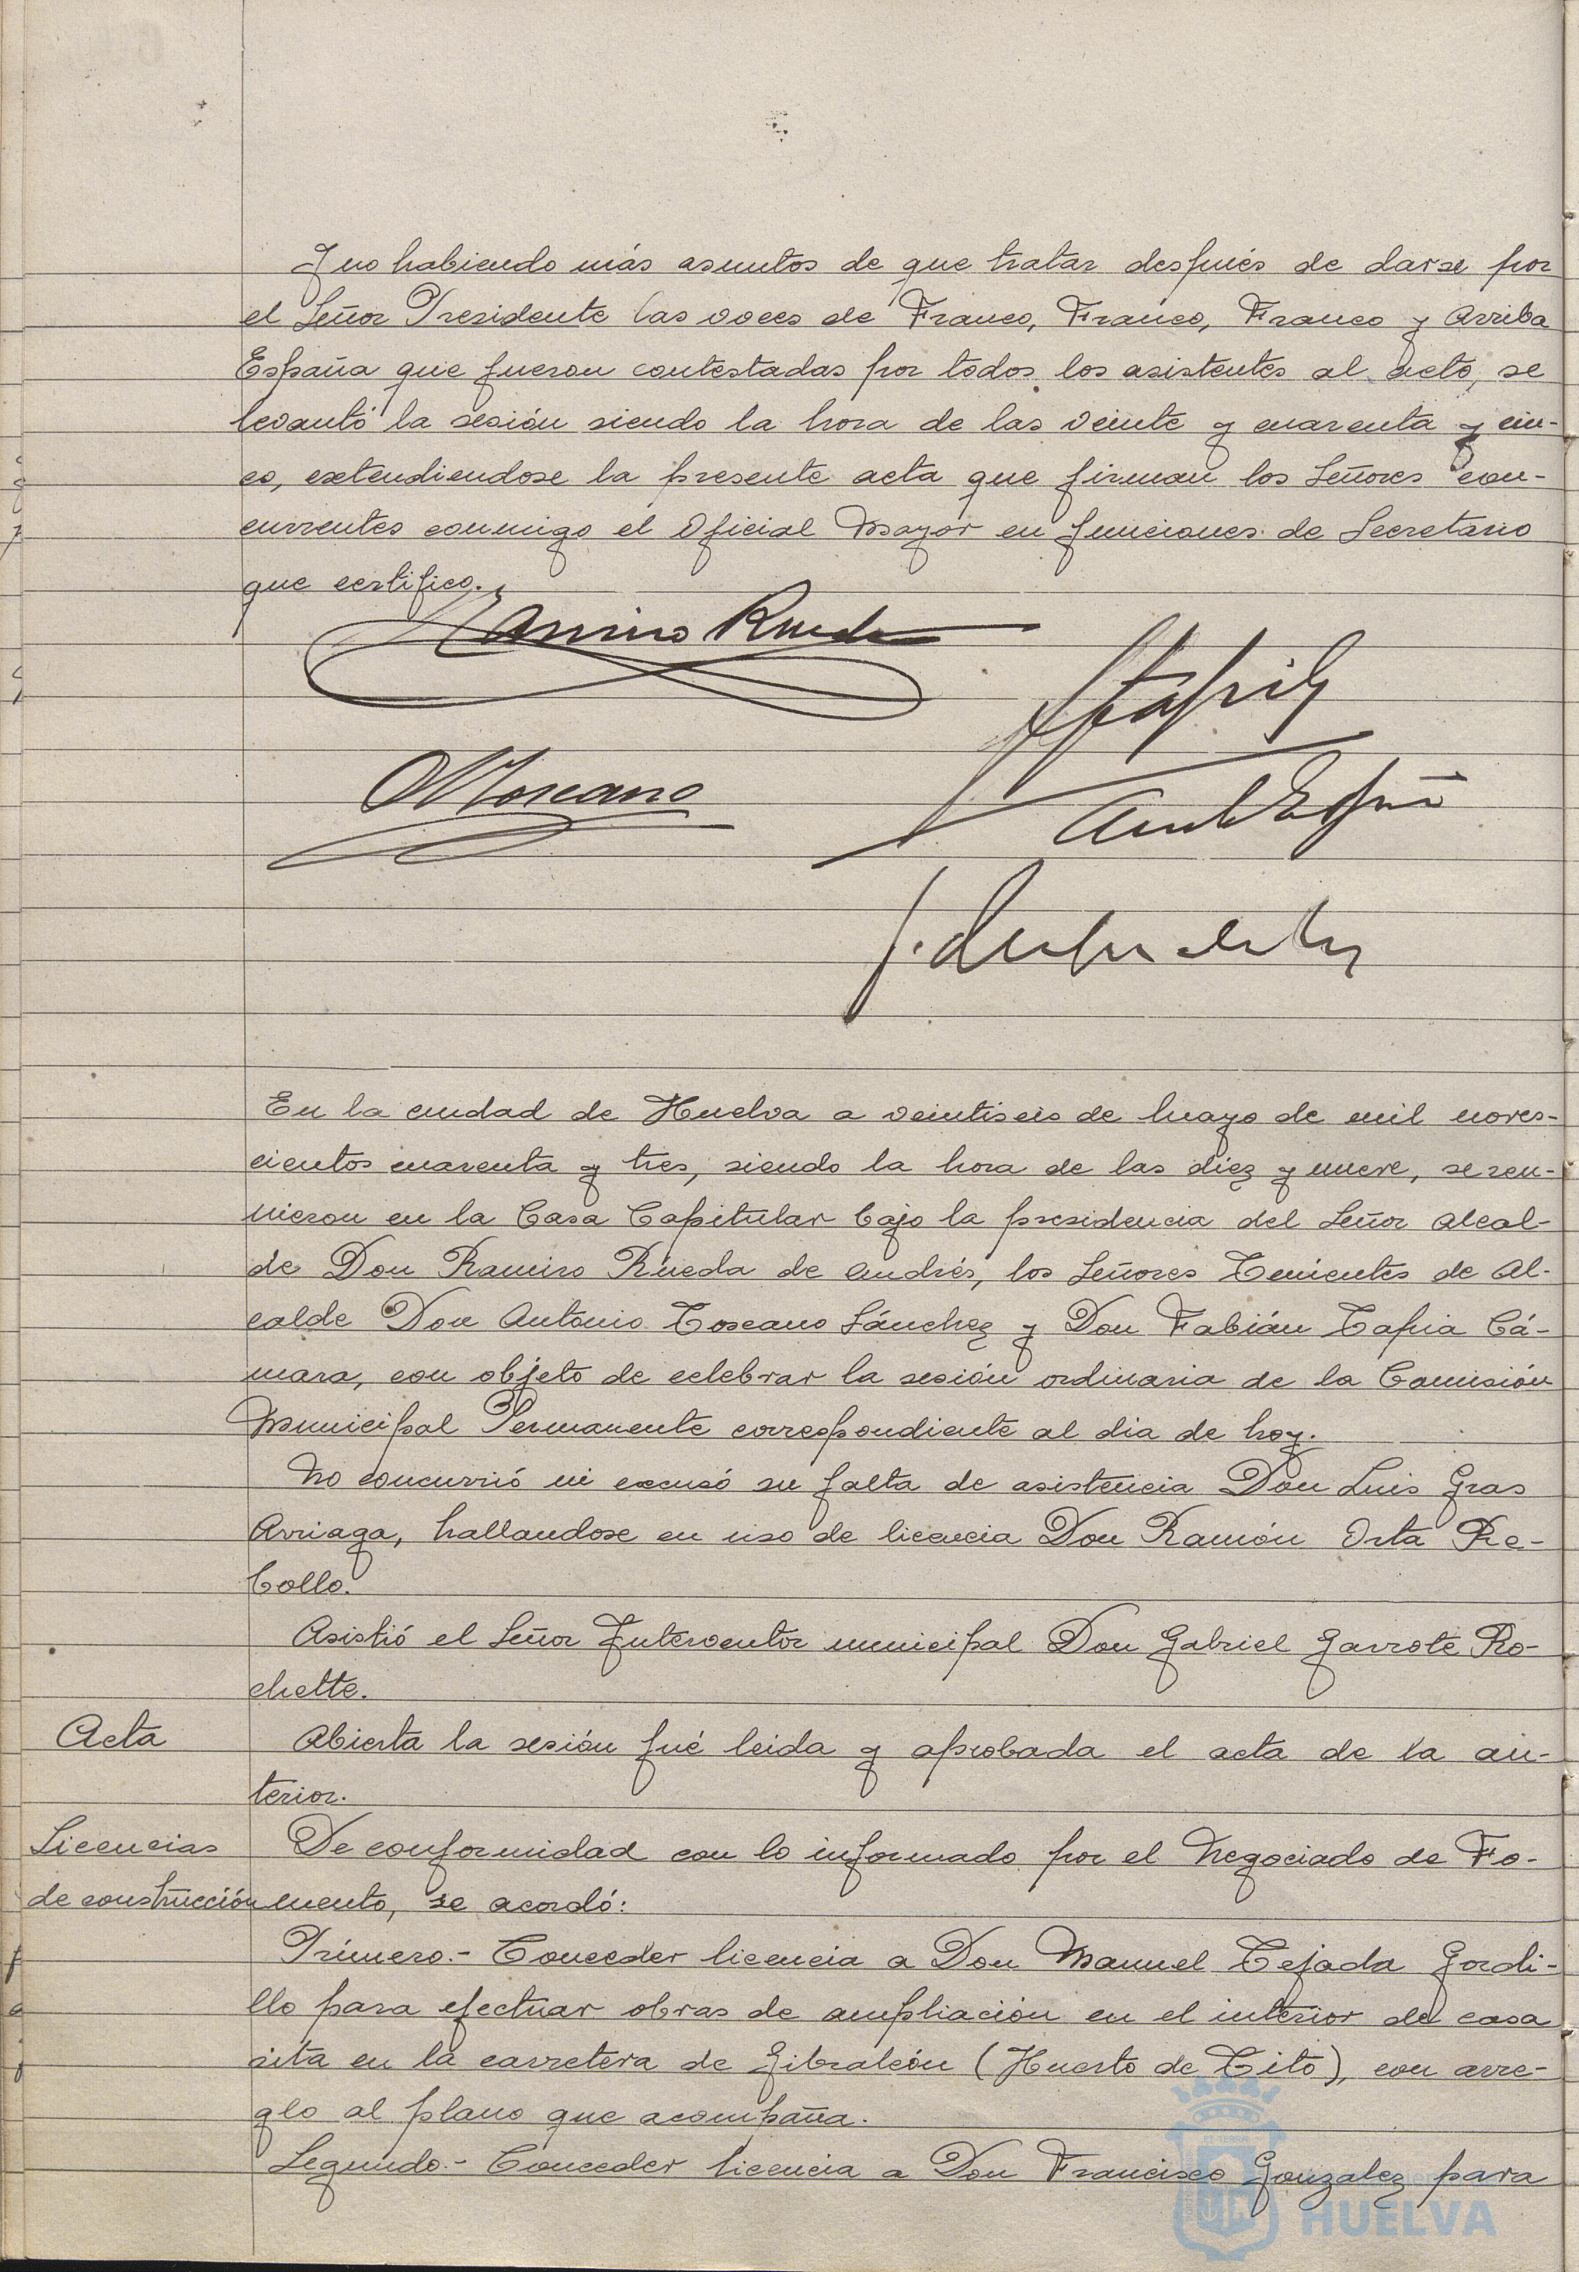 Y no habiendo más asuntos de que tratar después de darse por
el Señor Presidente las voces de Franco, Franco, Franco y Arriba
España que fueron contestadas por todos los asistentes al acto, se
levantó la sesión siendo la hora de las veinte y cuarenta y cin-
co, extendiendose la presente acta que firman los Señores con-
currentes conmigo el Oficial Mayor en funciones de Secretario
que certifico.
Ramiro Rueda
FTapia
AToscano
En la ciudad de Huelva a veintiseis de Mayo de mil noves-
cientos cuarenta y tres, siendo la hora de las diez y nueve, se reu-
nieron en la Casa Capitular bajo la presidencia del Señor Alcal-
de Don Ramiro Rueda de Andrés, los Señores Tenientes de Al-
calde Don Antonio Toscano Sánchez y Don Fabián Tapia Cá-
mara, con objeto de celebrar la sesión ordinaria de la Comisión
Municipal Permanente correspondiente al dia de hoy.
No concurrió ni excusó su falta de asistencia Don Luis Gras
Arriaga, hallandose en uso de licencia Don Ramón Orta Re-
bollo.
Asistió el Señor Interventor municipal Don Gabriel Garrote Ro-
chette.
Acta Abierta la sesión fué leida y aprobada el acta de la an-
terior.
Licencias De conformidad con lo informado por el Negociado de Fo-
de construcción mento, se acordó:
Primero.- Conceder licencia a Don Manuel Tejada Gordi-
llo para efectuar obras de ampliación en el interior de casa
sita en la carretera de Gibraleón (Huerto de Tito), con arre-
glo al plano que acompaña.
Segundo.- Conceder licencia a Don Francisco Gonzalez para
HUELVA